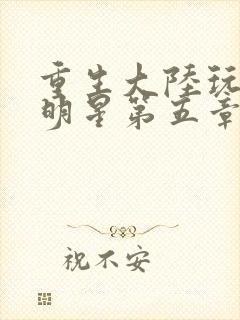 重生大陸玩
明星第五章
祝不安